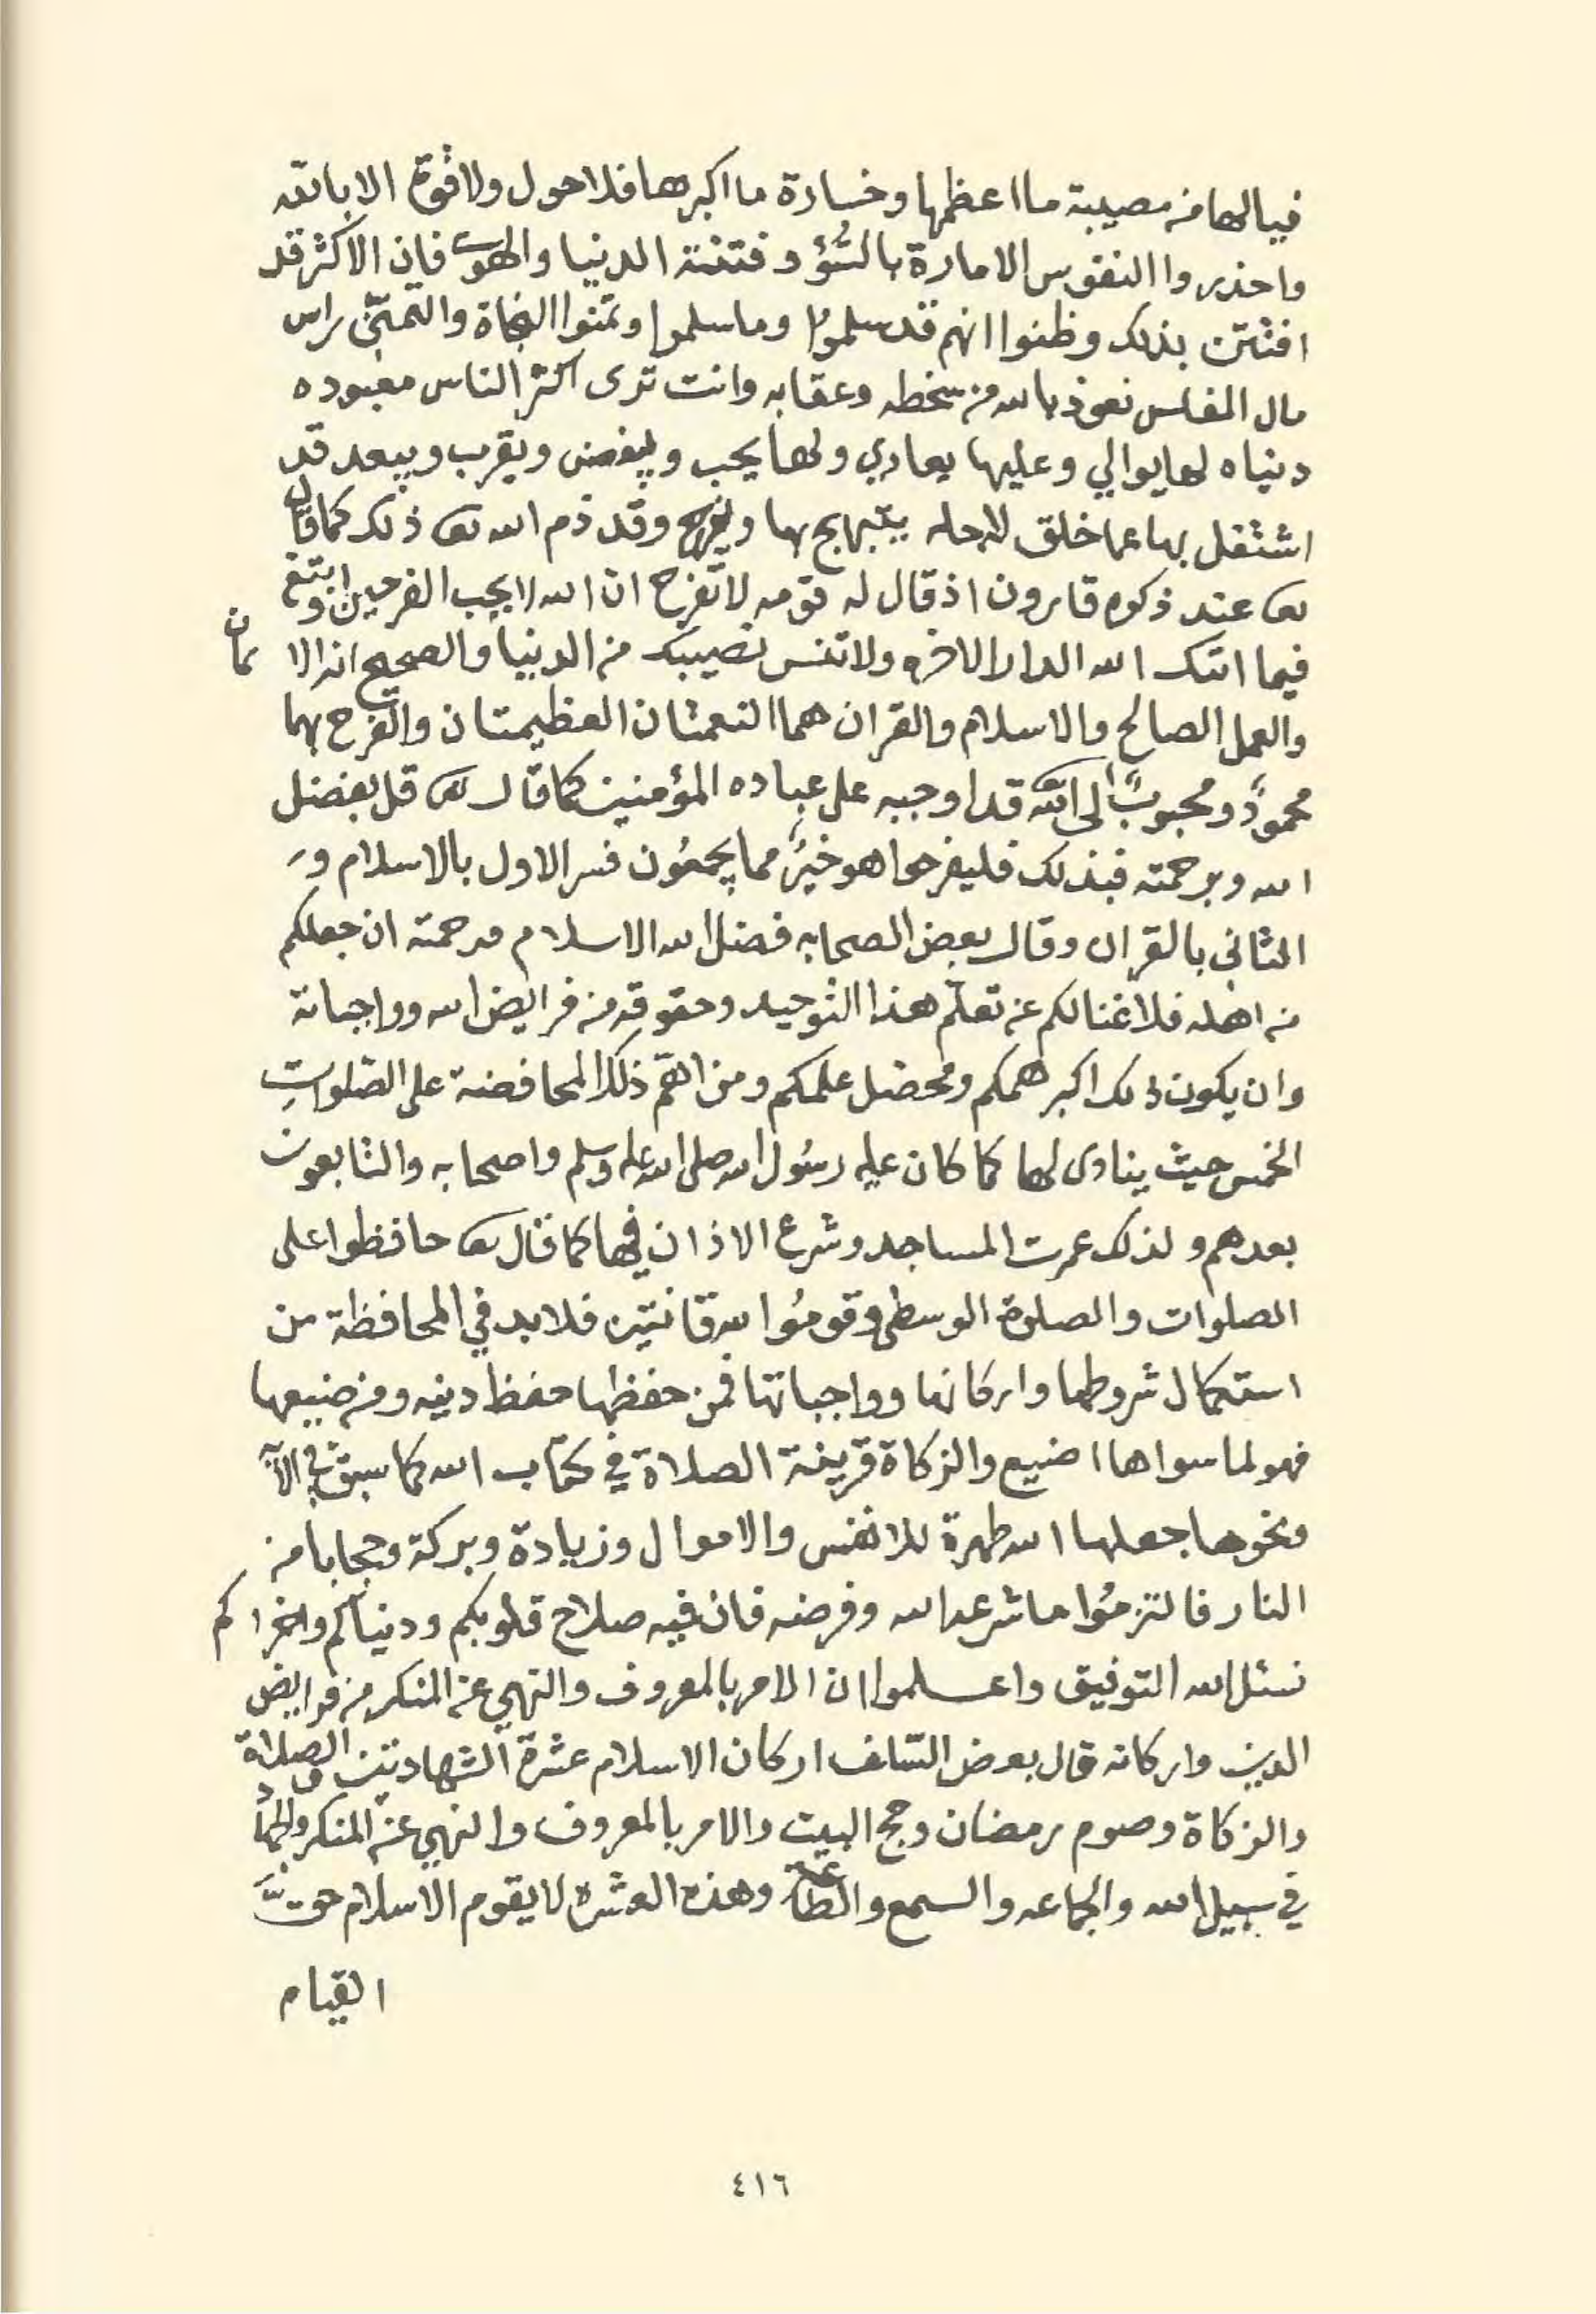 فيا لها من مصيبة ما اعظمها وخسارة ما اكبرها فلا حول ولا قوة الا بالله
واحذروا النفوس الامارة بالسُّؤ وفتنة الدنيا والهوى فان الاكثر قد
افتتن بذلك وظنوا انهم قد سلموا وما سلموا وتمنوا النجاة والتمنّي راس
مال المفلس نعوذ بالله من سخطه وعقابه وانت ترى اكثر الناس معبوده
دنياه لها يوالي وعليها يعادي ولها يحب ويبغض ويقرب ويبعد قد
اشتغل بها عما خلق لاجله يتبهج بها ويفرح وقد ذم الله تعا ذلك كما قال
تعا عند ذكره قارون اذ قال له قومه لا تفرح ان الله لا يحب الفرحين وابتغ
فيما اتك الله الدار الاخره ولا تنس نصيبك من الدنيا والصحيح ان الا يمان
والعمل الصالح والاسلام والقران هما النعمتان العظيمتان والفرح بهما
محمودٌ ومحبوبٌ الى الله قد اوجبه على عباده المؤمنين كما قال تعا قل بفضل
الله وبرحمته فبذلك فليفرحوا هو خيرٌ مما يجمعُون فسر الاول بالاسلام و
الثاني بالقران وقال بعض الصحابه فضل الله الاسلام ورحمته ان جعلكم
من اهله فلا غنا لكم عن تعلّم هذا التوحيد وحقوقه من فرايض الله وواجباته
وان يكون ذلك اكبر همكم ومحصل علمكم ومن اهمّ ذلك المحافضة على الصّلوات
الخمس حيث ينادى لها كما كان عليه رسُول الله صلى الله عليه وسلم واصحابه والتابعون
بعدهم ولذلك عمرت المساجد وشرع الاذان فيها كما قال تعا حافظوا على
الصلوات والصلوة الوسطى وقومُوا لله قانتين فلا بد في المحافظة من
استكمال شروطها واركانها وواجباتها فمن حفظها حفظ دينه ومن ضيعها
فهو لما سواها اضيع والزكاة قرينة الصلاة في كتاب الله كما سبق في الآية
ونحوها جعلها الله طهرة للانفس والاموال وزيادة وبركة وحجابا من
النار فالتزمُوا ما شرعه الله وفرضه فان فيه صلاح قلوبكم ودنياكم واخراكم
نسئل الله التوفيق واعلموا ان الامر بالمعروف والنهي عن المنكر من فرايض
الدين واركانه قال بعض السّلف اركان الاسلام عشرة الشهادتين والصلاة
والزكاة وصوم رمضان وحج البيت والامر بالمعروف والنهي عن المنكر والجهاد
في سبيل الله والجماعه والسمع والطاعة وهذه العشره لا يقوم الاسلام حقَّ
القيام
٤١٦